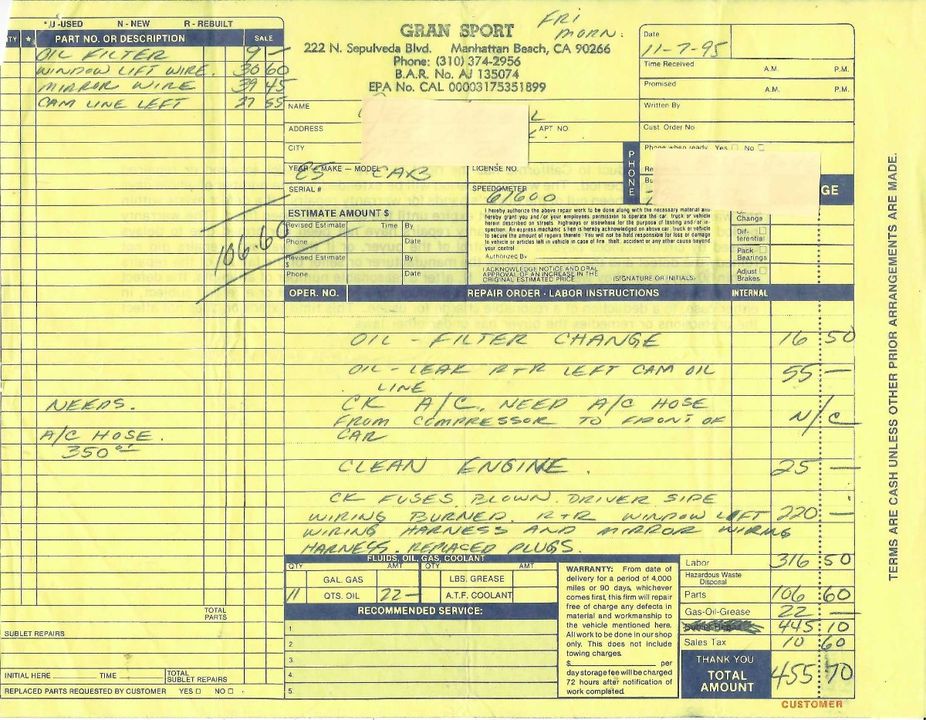 *U-USED N - NEW R - REBUILT
TY * PART NO. OR DESCRIPTION SALE
OIL FILTER 9 —
WINDOW LIFT WIRE. 30 60
MIRROR WIRE 39 45
CAM LINE LEFT 27 55
106.60
NEEDS.
A/C HOSE.
350
TOTAL
PARTS
SUBLET REPAIRS
INITIAL HERE TIME TOTAL
SUBLET REPAIRS
REPLACED PARTS REQUESTED BY CUSTOMER YES □ NO □
GRAN SPORT
222 N. Sepulveda Blvd. Manhattan Beach, CA 90266
Phone: (310) 374-2956
B.A.R. No. AJ 135074
EPA No. CAL 00003175351899
FRI
MORN:
Date
11-7-95
Time Received A.M. P.M.
Promised A.M. P.M.
Written By
Cust. Order No
Phone when ready Yes □ No □
PHONE
Re
Bu
NAME
ADDRESS APT NO
CITY
YEAR - MAKE - MODEL CAB LICENSE NO.
SERIAL # SPEEDOMETER
61600
GE
ESTIMATE AMOUNT $
Revised Estimate Time By
Phone Date
Revised Estimate By
$
Phone Date
I hereby authorize the above repair work to be done along with the necessary material and
hereby grant you and/or your employees permission to operate the car, truck or vehicle
herein described on streets, highways or elsewhere for the purpose of testing and/or in-
spection. An express mechanic's lien is hereby acknowledged on above car, truck or vehicle
to secure the amount of repairs thereto. You will not be held responsible for loss or damage
to vehicle or articles left in vehicle in case of fire, theft, accident or any other cause beyond
your control.
Authorized By
I ACKNOWLEDGE NOTICE AND ORAL
APPROVAL OF AN INCREASE IN THE
ORIGINAL ESTIMATED PRICE. (SIGNATURE OR INITIALS)
Change
Dif- □
ferential
Pack □
Bearings
Adjust □
Brakes
OPER. NO. REPAIR ORDER - LABOR INSTRUCTIONS INTERNAL
OIL - FILTER CHANGE 16 50
OIL - LEAK R+R LEFT CAM OIL 55 —
LINE
CK A/C, NEED A/C HOSE
FROM COMPRESSOR TO FRONT OF N/C
CAR
CLEAN ENGINE. 25 —
CK FUSES BLOWN. DRIVER SIDE
WIRING BURNED. R+R WINDOW LIFT 220 —
WIRING HARNESS AND MIRROR WIRING
HARNESS. REPLACED PLUGS.
FLUIDS, OIL, GAS, COOLANT
QTY AMT QTY AMT
GAL. GAS LBS. GREASE
11 QTS. OIL 22 — A.T.F. COOLANT
RECOMMENDED SERVICE:
1
2
3.
4.
5.
WARRANTY: From date of
delivery for a period of 4,000
miles or 90 days, whichever
comes first, this firm will repair
free of charge any defects in
material and workmanship to
the vehicle mentioned here.
All work to be done in our shop
only. This does not include
towing charges.
$ per
day storage fee will be charged
72 hours after notification of
work completed.
Labor 316 50
Hazardous Waste
Disposal
Parts 106 60
Gas-Oil-Grease 22 —
445 10
Sales Tax 10 60
THANK YOU
TOTAL
AMOUNT 455 70
CUSTOMER
TERMS ARE CASH UNLESS OTHER PRIOR ARRANGEMENTS ARE MADE.